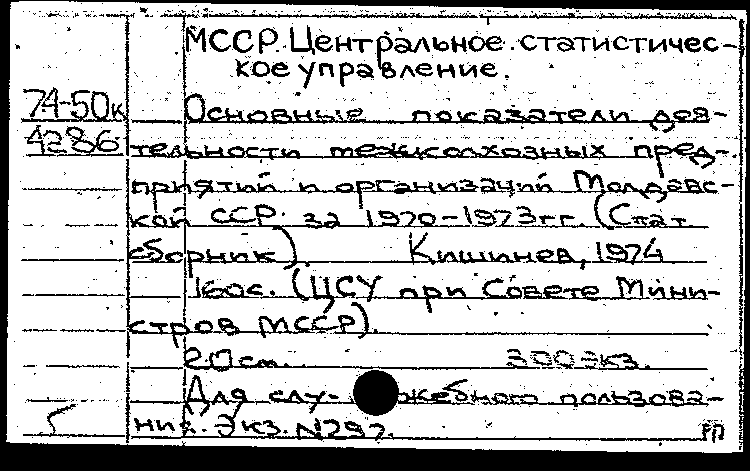 МССР. Центральное статистичес-
кое управление.
74-50к Основные показатели дея-
4286 тельности межколхозных пред-
приятий и организаций Молдавс-
кой ССР за 1970-1973 гг. (Стат
сборник). Кишинев, 1974
160с. (ЦСУ при Совете Мини-
стров МССР).
20см. 300 экз.
Для слу- жебного пользова-
ния. Экз. N297.